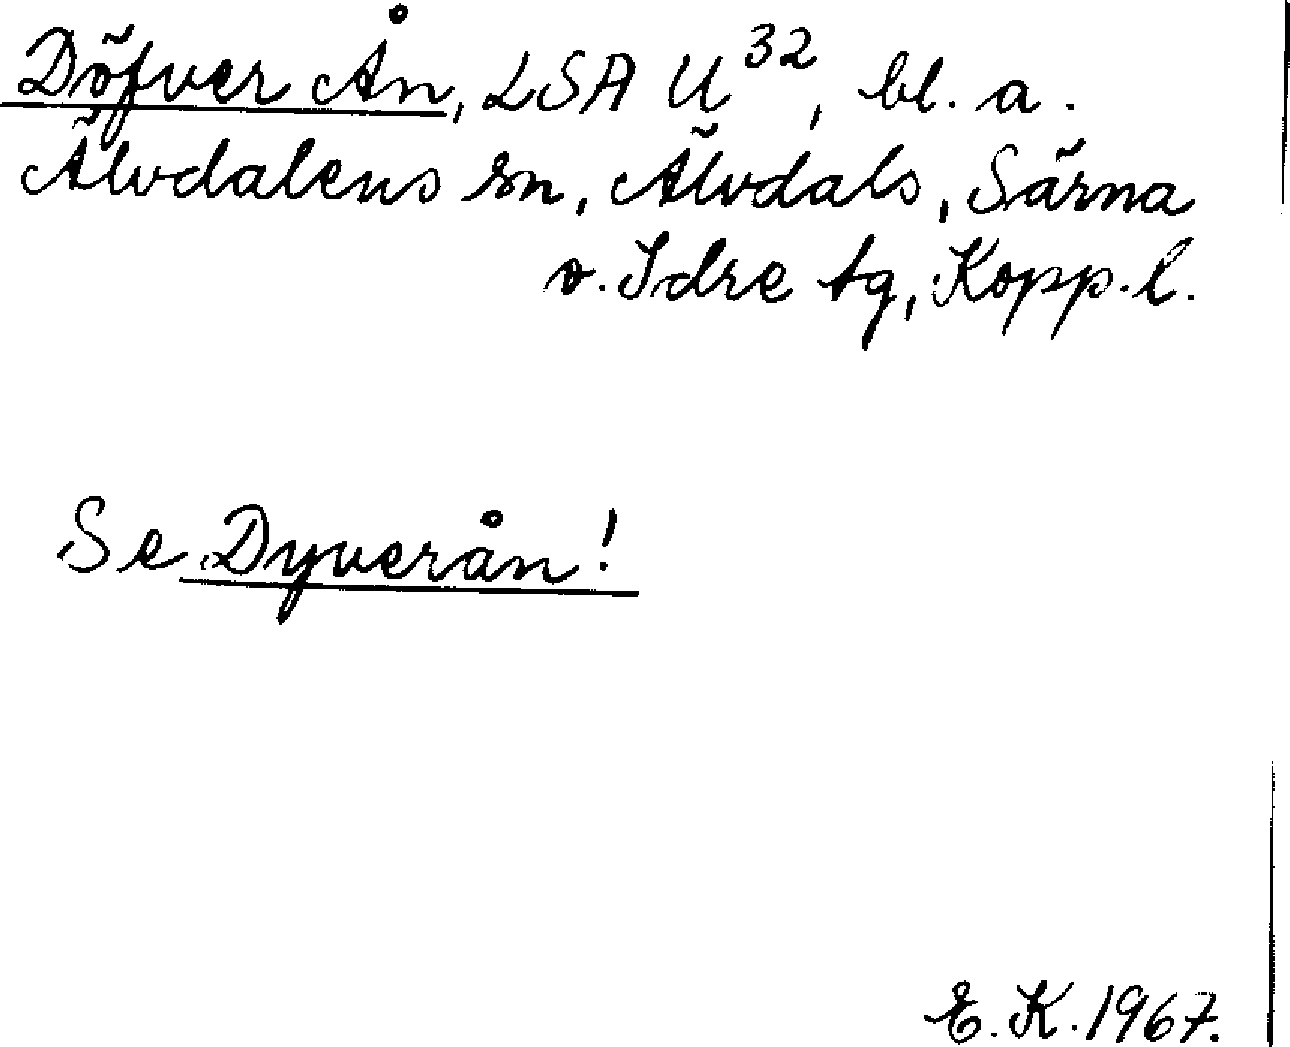 Döfver Ån, LSA U 32, bl. a.
Älvdalens sn, Älvdals, Särna
o. Idre tg, Kopp. l.
Se Dyverån!
E. K. 1967.